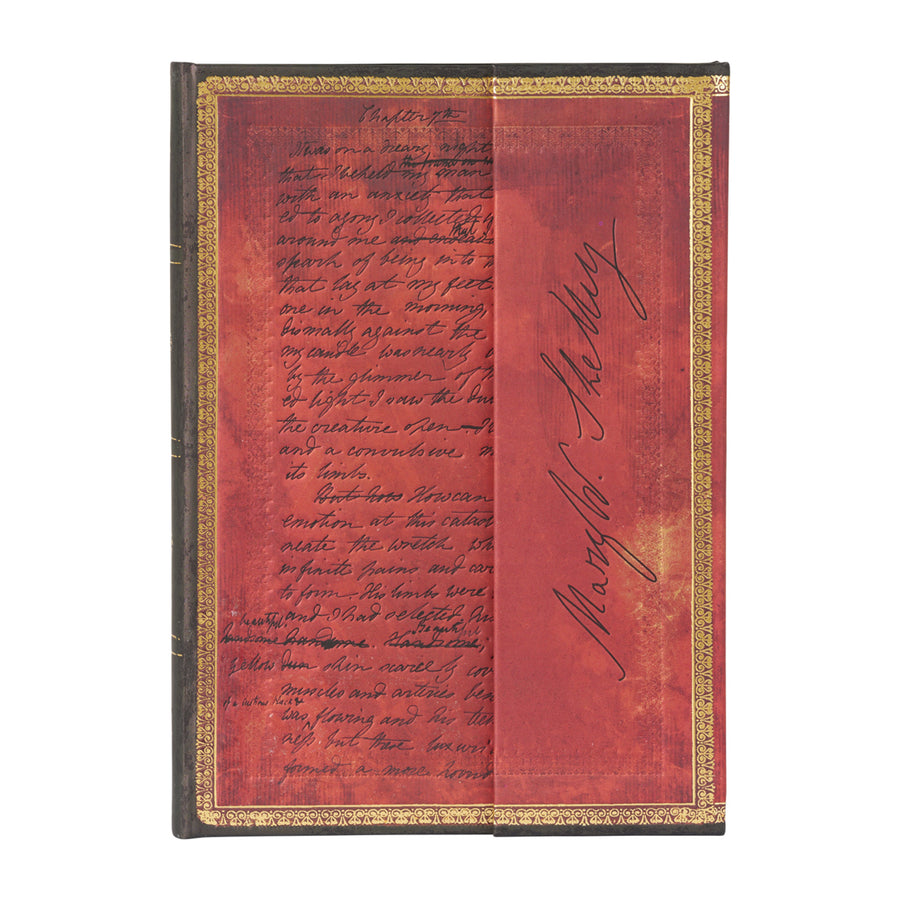 Chapter 7th
It was on a dreary night
the frame on
that I beheld my man
with an anxiety that
ed to agony I collected
that
around me and endeav
spark of being into
that lay at my feet
one in the morning,
dismally against the
my candle was nearly
by the glimmer of
ed light I saw the du
the creature open I
and a convulsive m
its limbs.
But how How can
emotion at this catas
reate the wretch wh
infinite pains and car
to form His limbs were
and I had selected his
beautiful
handsome handsome. Handsome,
Beautiful
yellow dun skin scarcely cov
muscles and arteries ben
of a lustrous black &
was flowing and his tee
ness but these luxuri
formed a more horrid
Mary W. Shelley